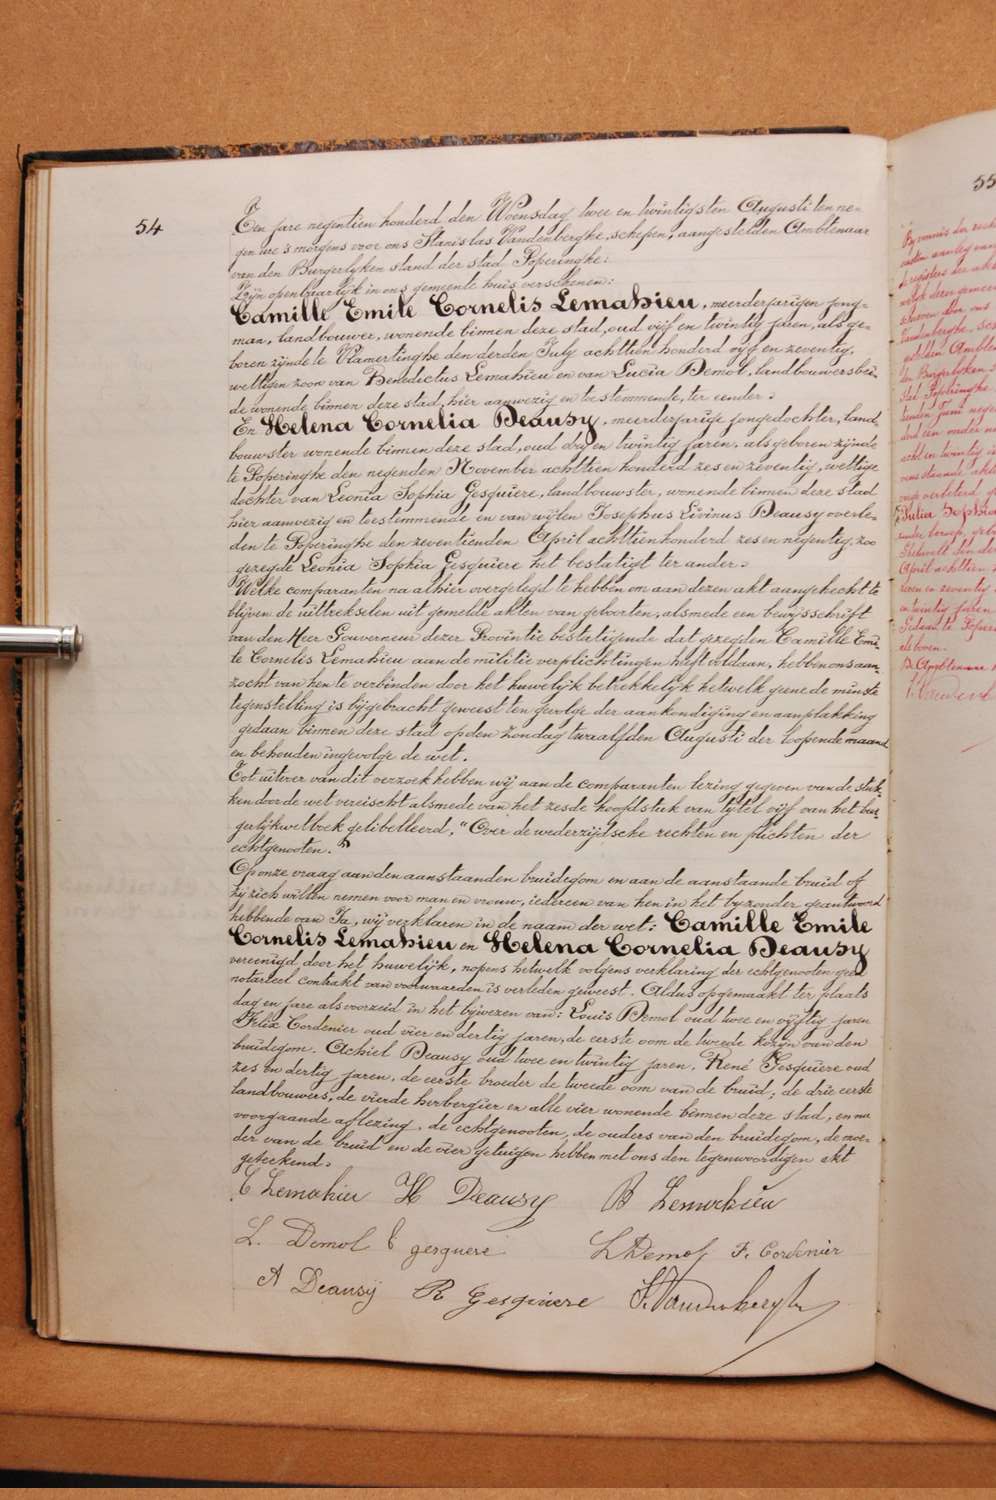 54
Een jare negentien honderd den Woensdag twee en twintigsten Augusti ten ne-
gen ure 's morgens voor ons Stanislas Vandenberghe, schepen, aangestelden Ambtenaar
van den Burgerlyken stand der stad Poperinghe:
Zijn openbaarlijk in ons gemeente huis verschenen:
Camille Emile Cornelis Lemahieu, meerderjarigen jong-
man, landbouwer, wonende binnen deze stad, oud vijf en twintig jaren, als ge-
boren zijnde te Vlamertinghe den derden July achttien honderd vijf en zeventig,
wettigen zoon van Benedictus Lemahieu en van Lucia Demol, landbouwers bei-
de wonende binnen deze stad, hier aanwezig en toestemmende, ter eender.
En Helena Cornelia Deausy, meerderjarige jongedochter, land-
bouwster wonende binnen deze stad, oud dry en twintig jaren, als geboren zijnde
te Poperinghe den negenden November achttien honderd zes en zeventig, wettige
dochter van Leonia Sophia Gesquiere, landbouwster, wonende binnen deze stad
hier aanwezig en toestemmende en van wijlen Josephus Livinus Deausy overle-
den te Poperinghe den zeventienden April achttien honderd zes en negentig, zoo
gezegde Leonia Sophia Gesquiere het bestatigt ter ander.
Welke comparanten na alhier overgelegd te hebben om aan dezen akt aangehecht te
blijven de uittrekselen uit gemelde akten van geboorten, alsmede een bewijsschrift
van den Heer Gouverneur dezer Provintie bestatigende dat gezegden Camille Emi-
le Cornelis Lemahieu aan de militie verplichtingen heeft voldaan, hebben ons aan-
zocht van hen te verbinden door het huwelijk betrekkelijk hetwelk geene de minste
tegenstelling is bijgebracht geweest ten gevolge der aankondiging en aanplakking
gedaan binnen deze stad op den zondag twaalfden Augusti der loopende maand
en behouden ingevolge de wet.
Tot uitvoer van dit verzoek hebben wij aan de comparanten lezing gegeven van de stuk-
ken door de wet vereischt alsmede van het zesde hoofdstuk van tytel vijf van het bur-
gerlijk wetboek getibelleerd, "Over de wederzijdsche rechten en plichten der
echtgenooten."
Op onze vraag aan den aanstaanden bruidegom en aan de aanstaande bruid of
zij zich willen nemen voor man en vrouw, iedereen van hen in het byzonder geantwoord
hebbende van Ja, wij verklaren in de naam der wet: Camille Emile
Cornelis Lemahieu en Helena Cornelia Deausy
vereenigd door het huwelijk, nopens hetwelk volgens verklaring der echtgenooten geen
notarieel contrakt van voorwaarden is verleden geweest. Aldus opgemaakt ter plaats
dag en jare als voorzeid in het bijwezen van: Louis Demol oud twee en vijftig jaren
Felix Cordenier oud vier en dertig jaren, de eerste oom de tweede kozyn van den
bruidegom. Achiel Deausy oud twee en twintig jaren. René Gesquiere oud
zes en dertig jaren, de eerste broeder de tweede oom van de bruid; de drie eerste
landbouwers, de vierde herbergier en alle vier wonende binnen deze stad, en na
voorgaande aflezing, de echtgenooten, de ouders van den bruidegom, de moe-
der van de bruid en de vier getuigen hebben met ons den tegenwoordigen akt
geteekend.
C Lemahieu H Deausy B Lemahieu
L. Demol gesquere L Demol F. Cordenier
A Deausÿ R Gesquiere S. Vandenberghe
55
By vonnis der
Julia Sophia
April achttien
en twintig jaren
als boven.